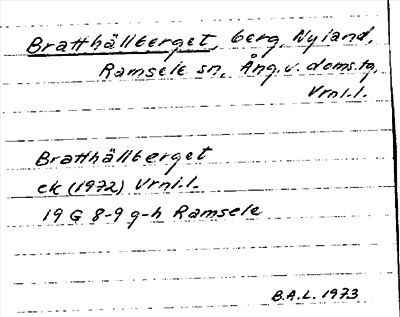 Bratthällberget, berg, Nyland,
Ramsele sn, Ång. v. doms.tg,
Vrnl.l.
Bratthällberget
ek (1972) Vrnl.l.
19 G 8-9 g-h Ramsele
B.A.L. 1973